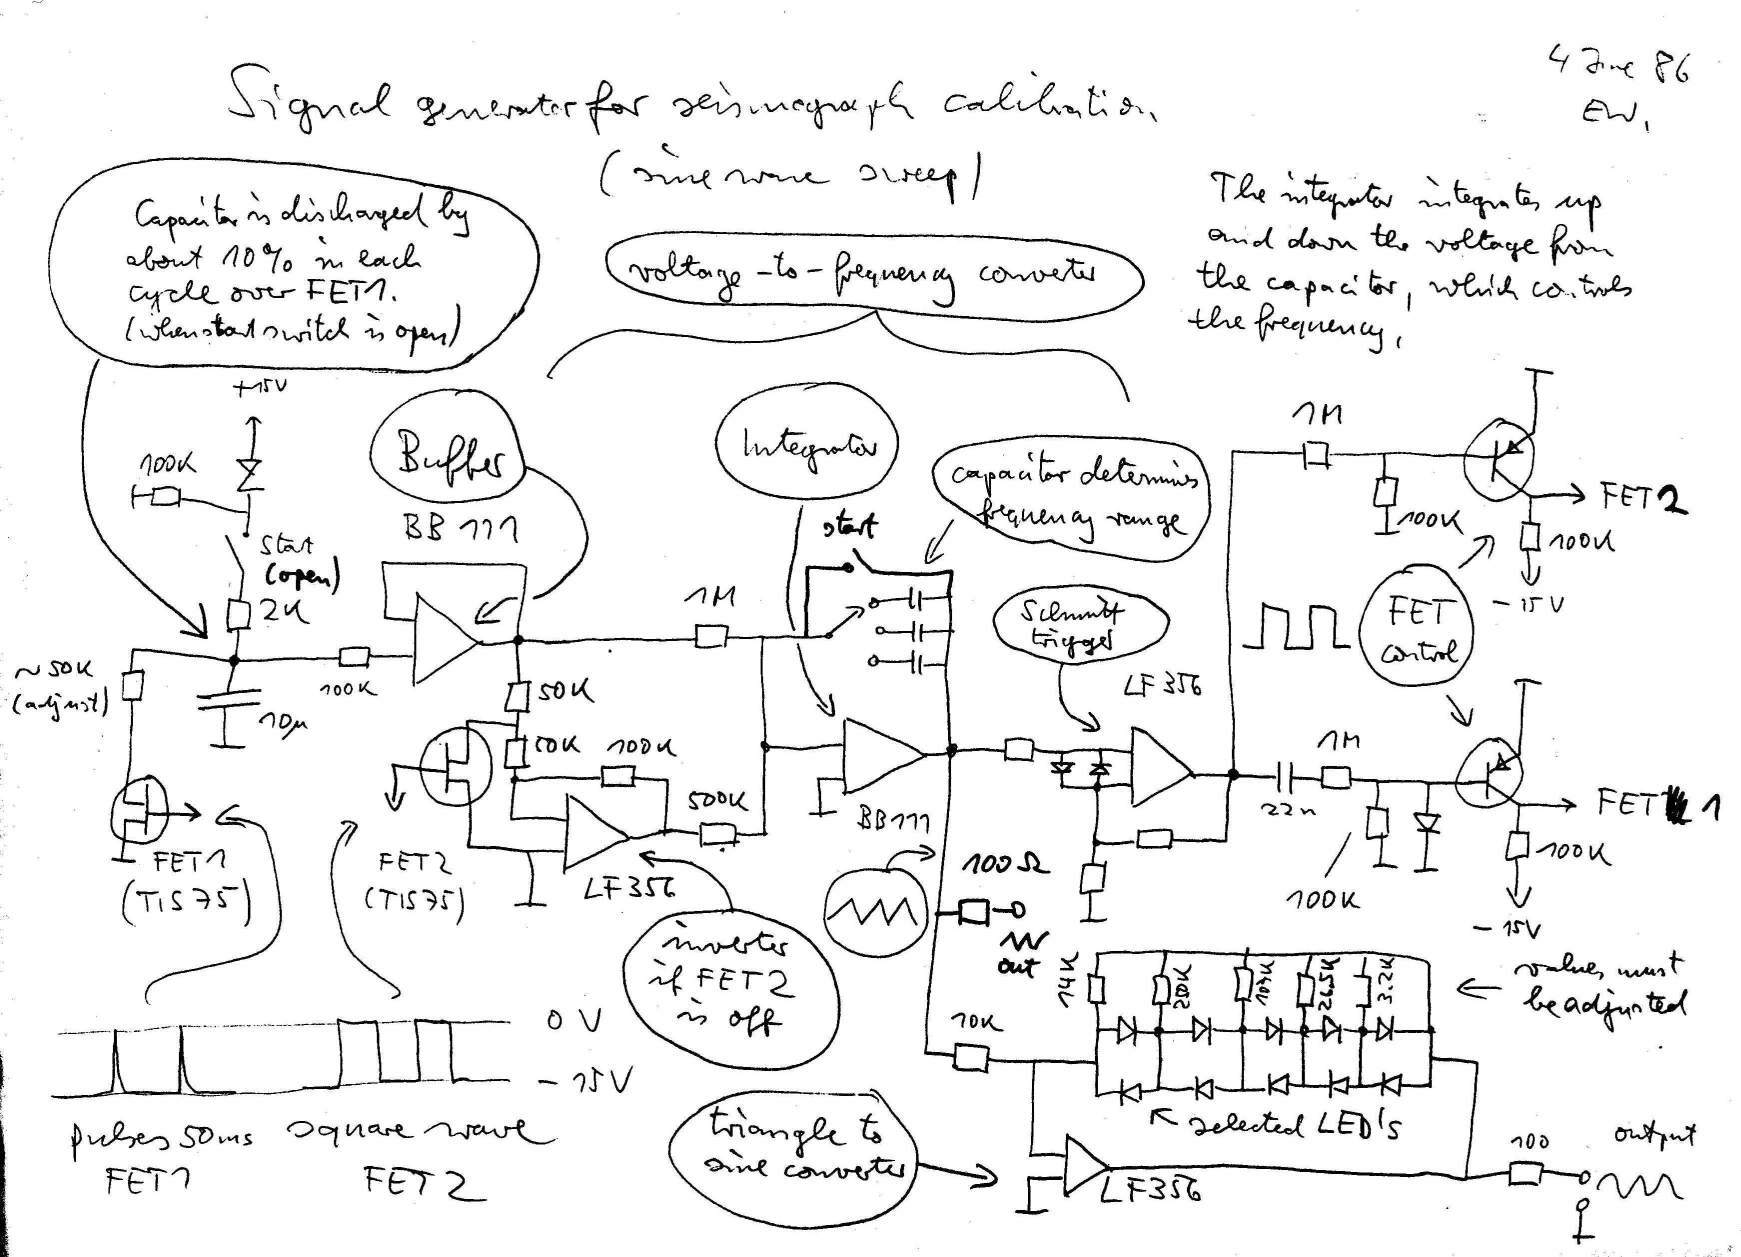 4 June 86
EW.
Signal generator for seismograph calibration.
(sine wave sweep)
Capacitor is discharged by
about 10% in each
cycle over FET1.
(when start switch is open)
voltage-to-frequency converter
The integrator integrates up
and down the voltage from
the capacitor, which controls
the frequency.
+15V
100K
Start
(open)
2K
~50K
(adjust)
10µ
100K
FET1
(TIS75)
Buffer
BB 111
50K
100K
500K
FET2
(TIS75)
LF356
inverter
if FET2
is off
Integrator
1M
start
capacitor determines
frequency range
BB111
100Ω
out
Schmitt
trigger
LF356
1M
100K
FET2
100K
-15V
FET
control
22n
1M
100K
FET 1
100K
-15V
14K
109K
26,5K
3.2K
values must
be adjusted
10K
selected LED's
triangle to
sine converter
LF356
100
output
0 V
-15V
pulses 50ms
FET1
square wave
FET2